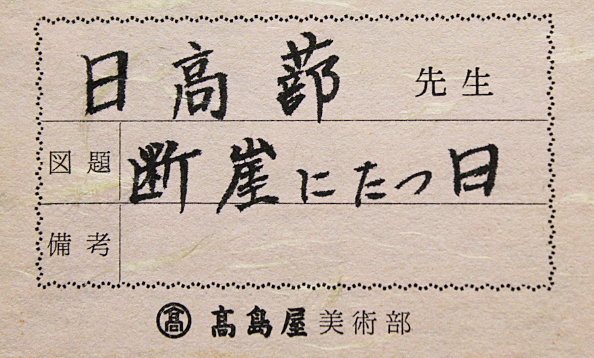 日高 蔀 先生
図題 断崖にたつ日
備考
髙 髙島屋美術部